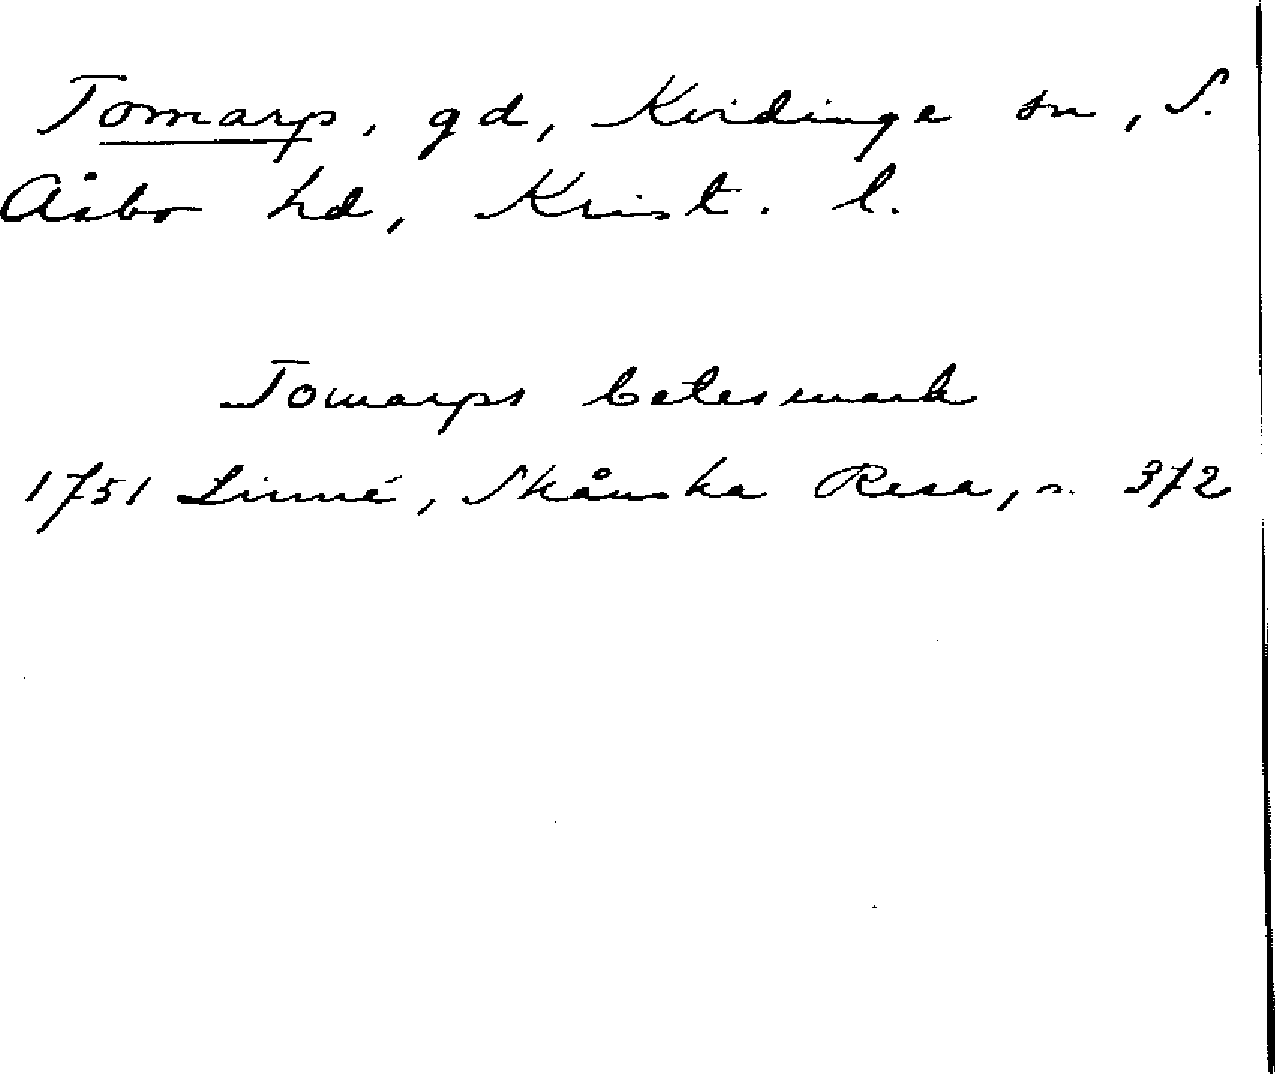 Tomarp, gd, Kvidinge sn, S.
Åsbo hd, Krist. l.
Tomarps betesmark
1751 Linné, Skånska Resa, s. 372